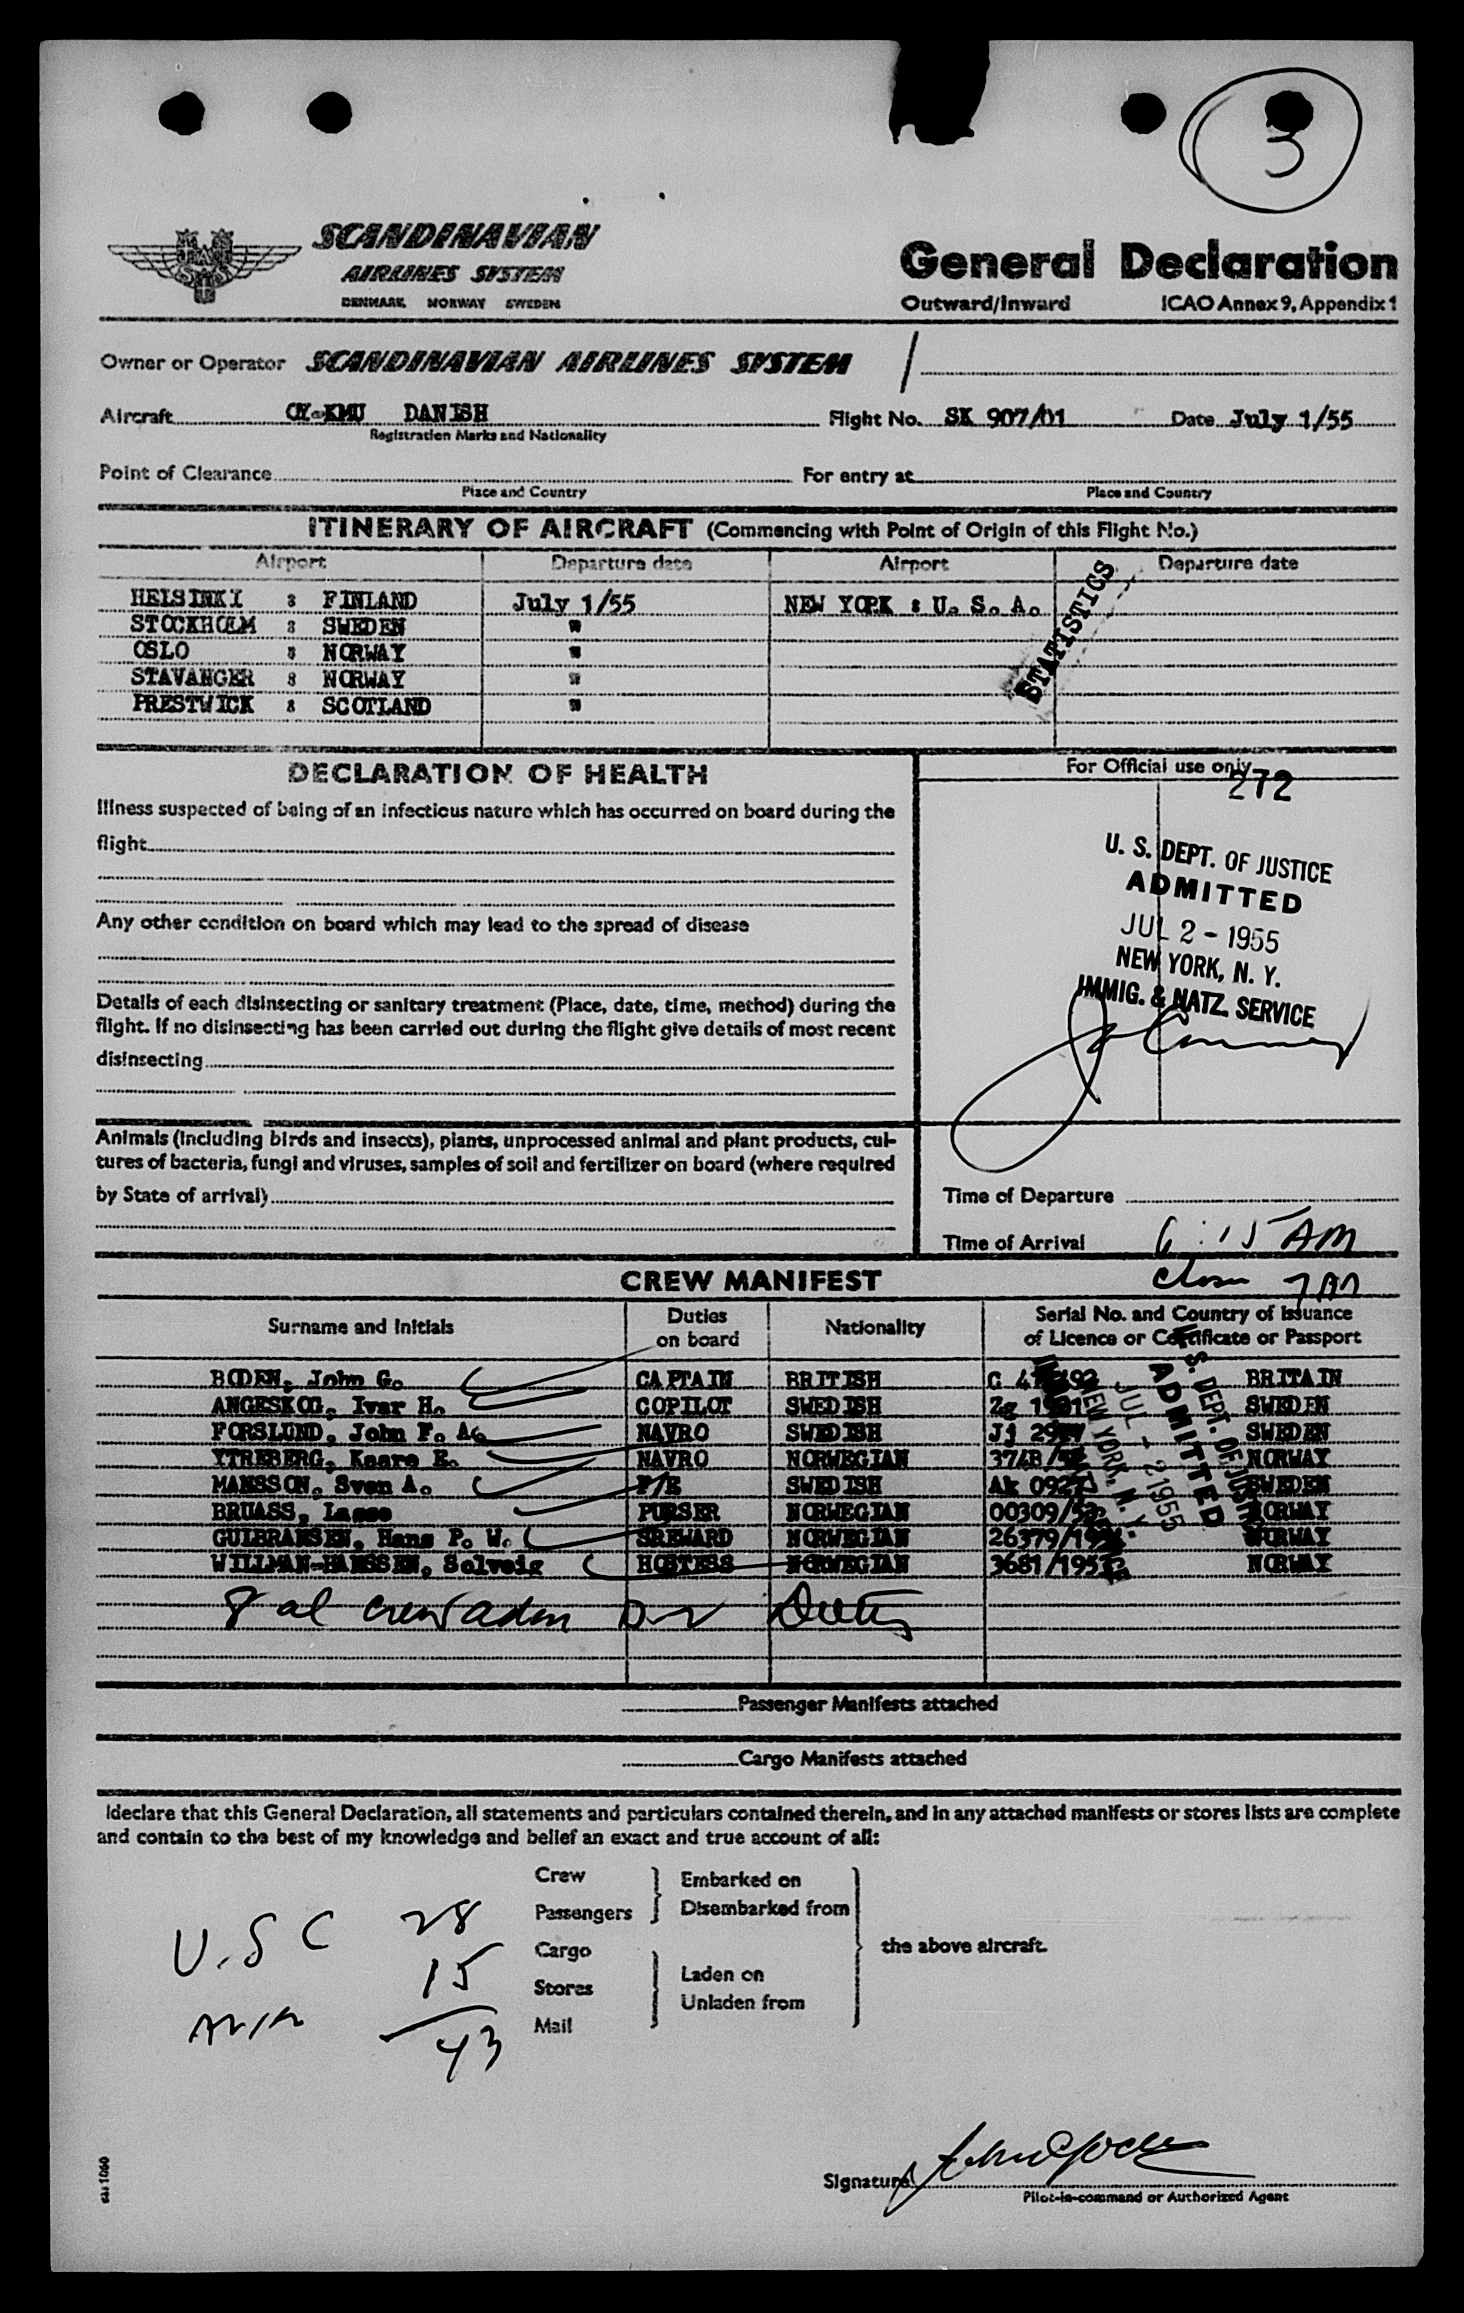 3
SCANDINAVIAN
AIRLINES SYSTEM
DENMARK NORWAY SWEDEN
General Declaration
Outward/Inward ICAO Annex 9, Appendix 1
Owner or Operator SCANDINAVIAN AIRLINES SYSTEM /
Aircraft OY-KMU DANISH Flight No. SK 907/01 Date July 1/55
Registration Marks and Nationality
Point of Clearance For entry at
Place and Country Place and Country
ITINERARY OF AIRCRAFT (Commencing with Point of Origin of this Flight No.)
Airport Departure date Airport Departure date
HELSINKI : FINLAND July 1/55 NEW YORK : U. S. A.
STOCKHOLM : SWEDEN "
OSLO : NORWAY "
STAVANGER : NORWAY "
PRESTWICK : SCOTLAND "
STATISTICS
DECLARATION OF HEALTH
Illness suspected of being of an infectious nature which has occurred on board during the
flight
Any other condition on board which may lead to the spread of disease
Details of each disinsecting or sanitary treatment (Place, date, time, method) during the
flight. If no disinsecting has been carried out during the flight give details of most recent
disinsecting
Animals (including birds and insects), plants, unprocessed animal and plant products, cul-
tures of bacteria, fungi and viruses, samples of soil and fertilizer on board (where required
by State of arrival)
For Official use only
272
U. S. DEPT. OF JUSTICE
ADMITTED
JUL 2 - 1955
NEW YORK, N. Y.
IMMIG. & NATZ. SERVICE
Time of Departure
Time of Arrival 6:15 AM
7 AM
CREW MANIFEST
Surname and Initials Duties on board Nationality Serial No. and Country of Issuance of Licence or Certificate or Passport
BODEN, John G. CAPTAIN BRITISH C BRITAIN
ANGESKOG, Ivar H. COPILOT SWEDISH Zg SWEDEN
FORSLUND, John F. A. NAVRO SWEDISH Jj SWEDEN
YTREBERG, Kaare E. NAVRO NORWEGIAN NORWAY
MANSSON, Sven A. F/E SWEDISH Ak SWEDEN
BRUASS, Lasse PURSER NORWEGIAN NORWAY
GULBRANSEN, Hans P. W. SREWARD NORWEGIAN NORWAY
WILLMAN-HANSSEN, Solveig HOSTESS NORWEGIAN NORWAY
U. S. DEPT. OF JUSTICE
ADMITTED
JUL - 2 1955
NEW YORK, N. Y.
8 al crew
Passenger Manifests attached
Cargo Manifests attached
I declare that this General Declaration, all statements and particulars contained therein, and in any attached manifests or stores lists are complete
and contain to the best of my knowledge and belief an exact and true account of all:
Crew Embarked on
Passengers Disembarked from
Cargo the above aircraft.
Stores Laden on
Unladen from
Mail
U.S C 28
15
43
Signature
Pilot-in-command or Authorized Agent